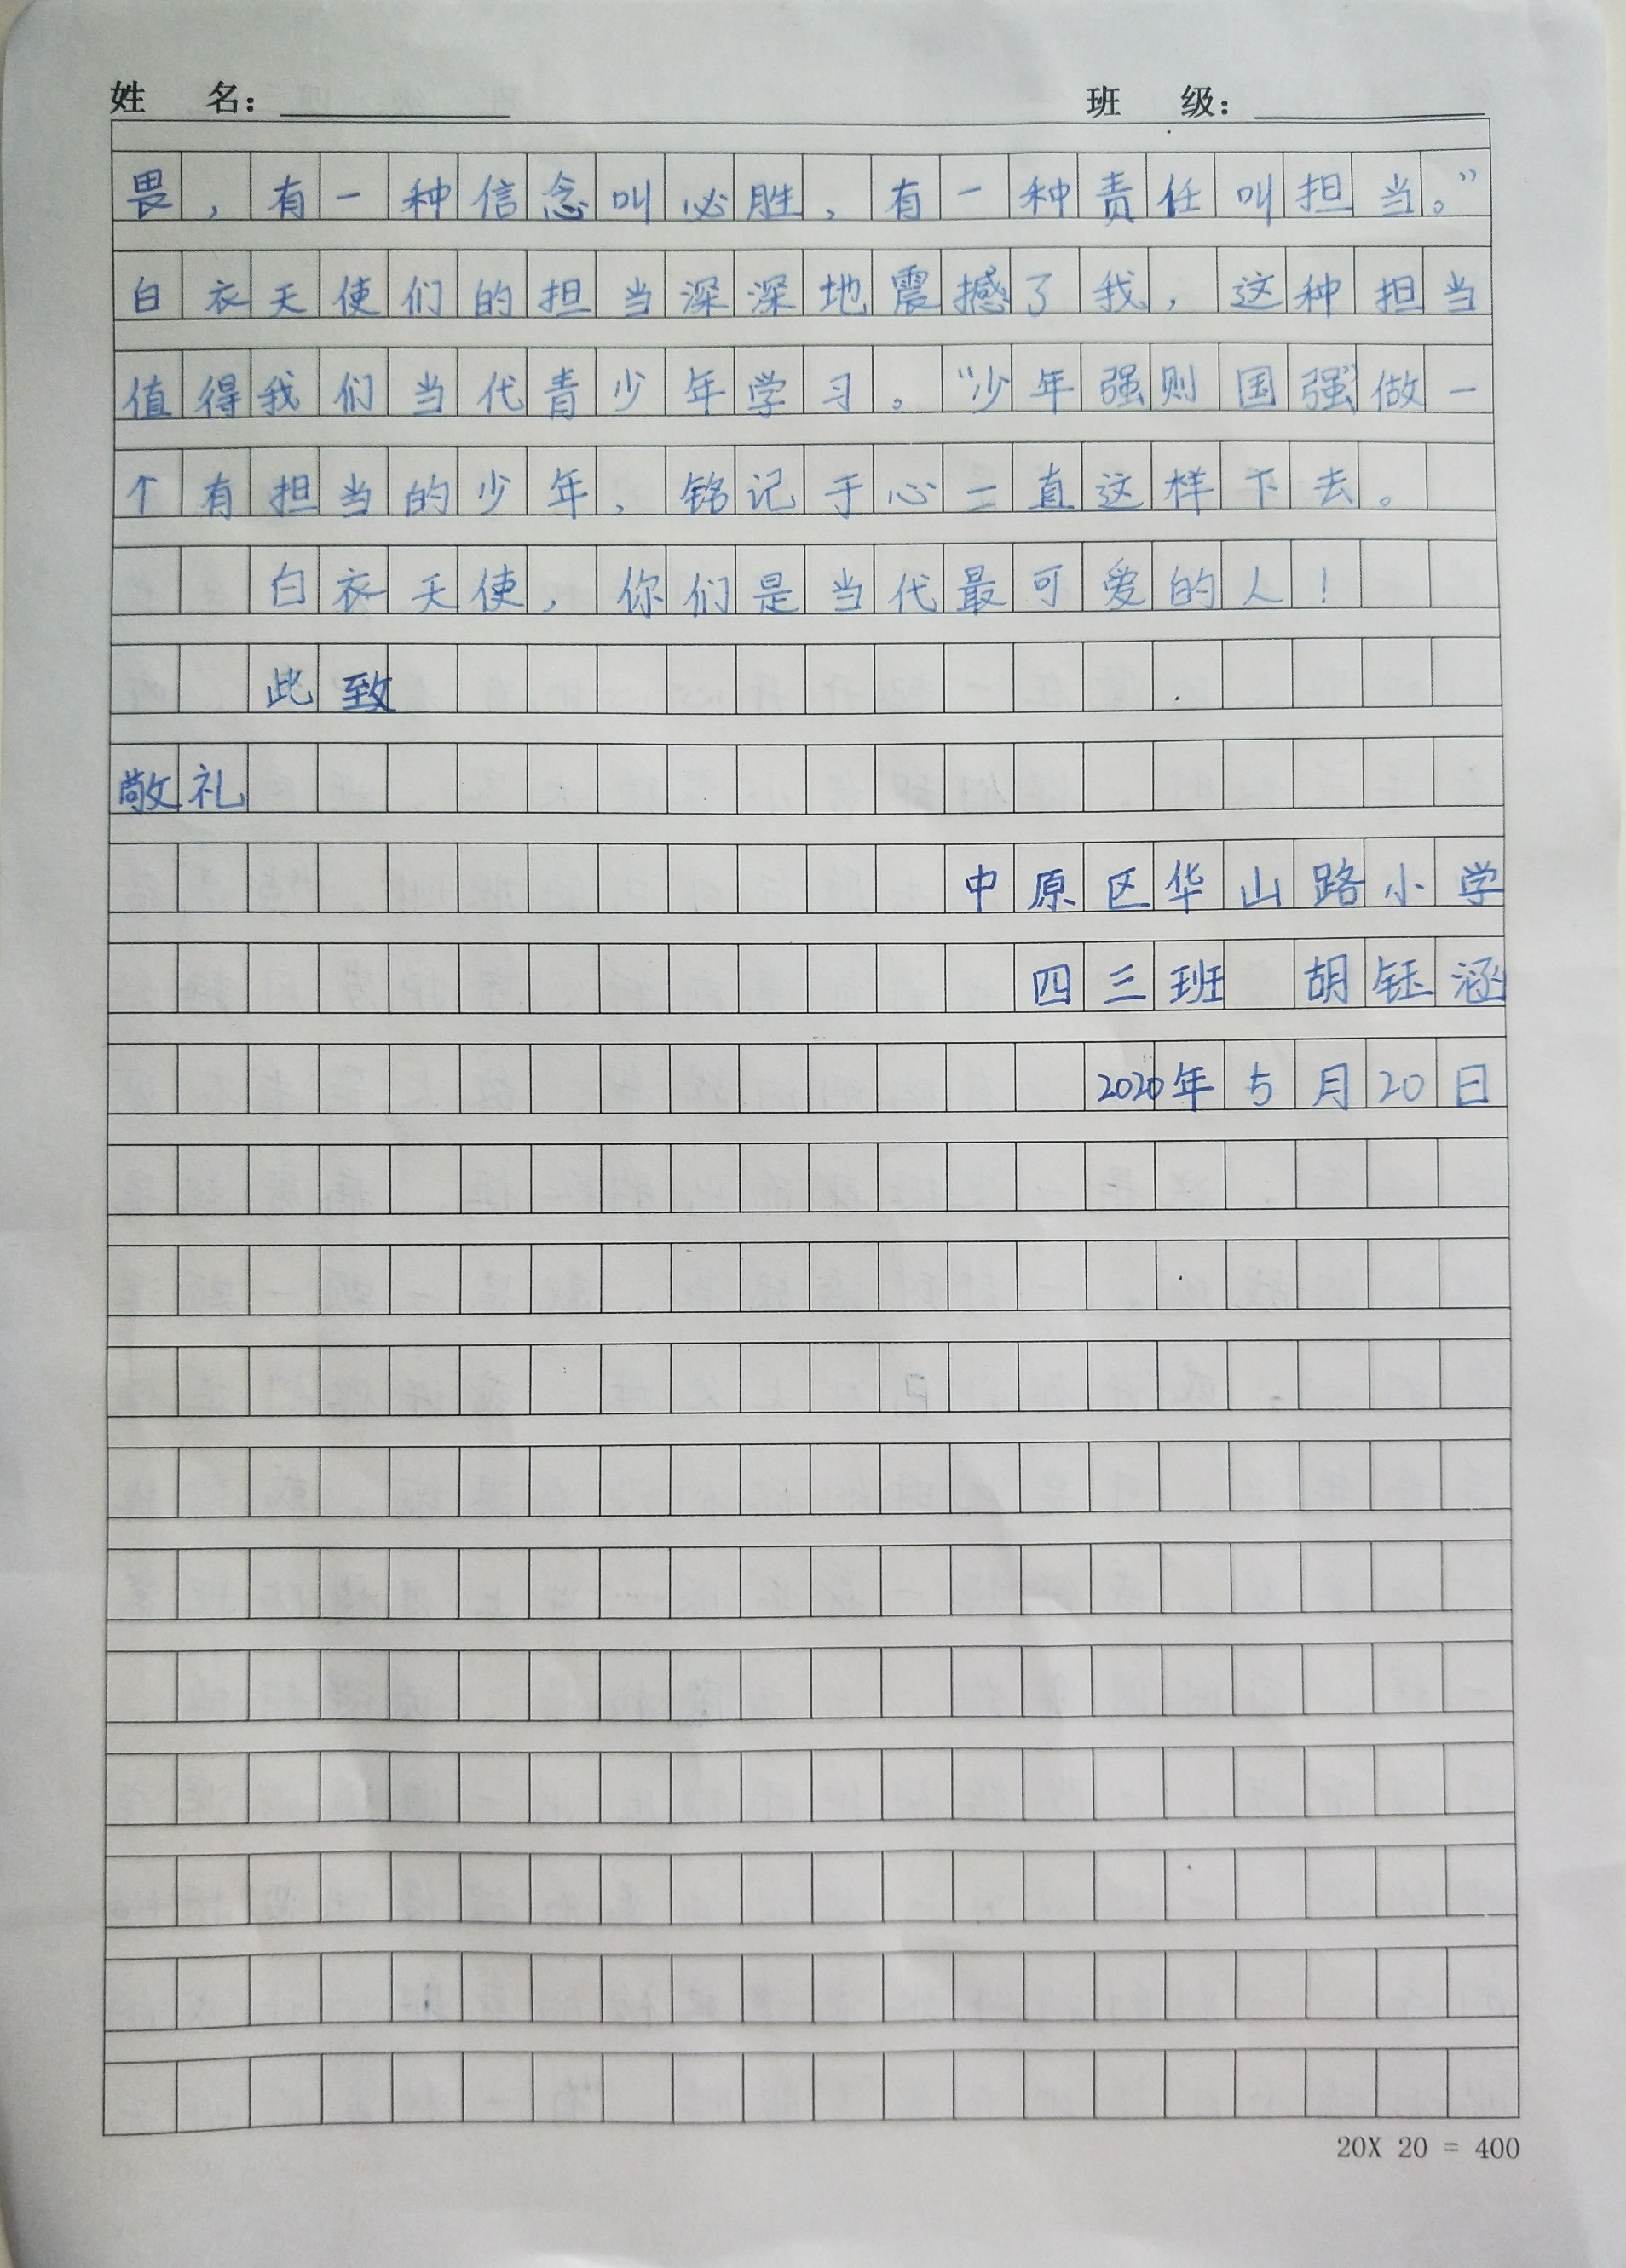 姓 名： 班 级：
畏，有一种信念叫必胜，有一种责任叫担当。”
白衣天使们的担当深深地震撼了我，这种担当
值得我们当代青少年学习。“少年强则国强”做一
个有担当的少年，铭记于心一直这样下去。
白衣天使，你们是当代最可爱的人！
此致
敬礼
中原区华山路小学
四三班 胡钰涵
2020年5月20日
20X 20 = 400